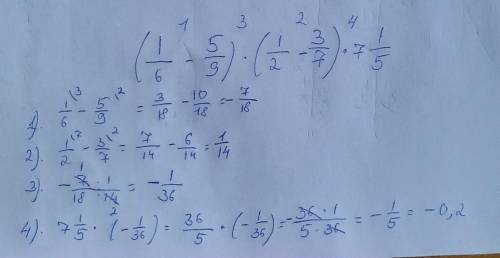 1 3 2 4
(1/6 - 5/9) · (1/2 - 3/7) · 7 1/5
1). 1/6 \3 - 5/9 \2 = 3/18 - 10/18 = - 7/18
2). 1/2 \7 - 3/7 \2 = 7/14 - 6/14 = 1/14
3). - 7 · 1/18 · 14 = - 1/36
4). 7 1/5 · (- 1/36) = 36/5 · (- 1/36) = - 36 · 1/5 · 36 = - 1/5 = -0,2